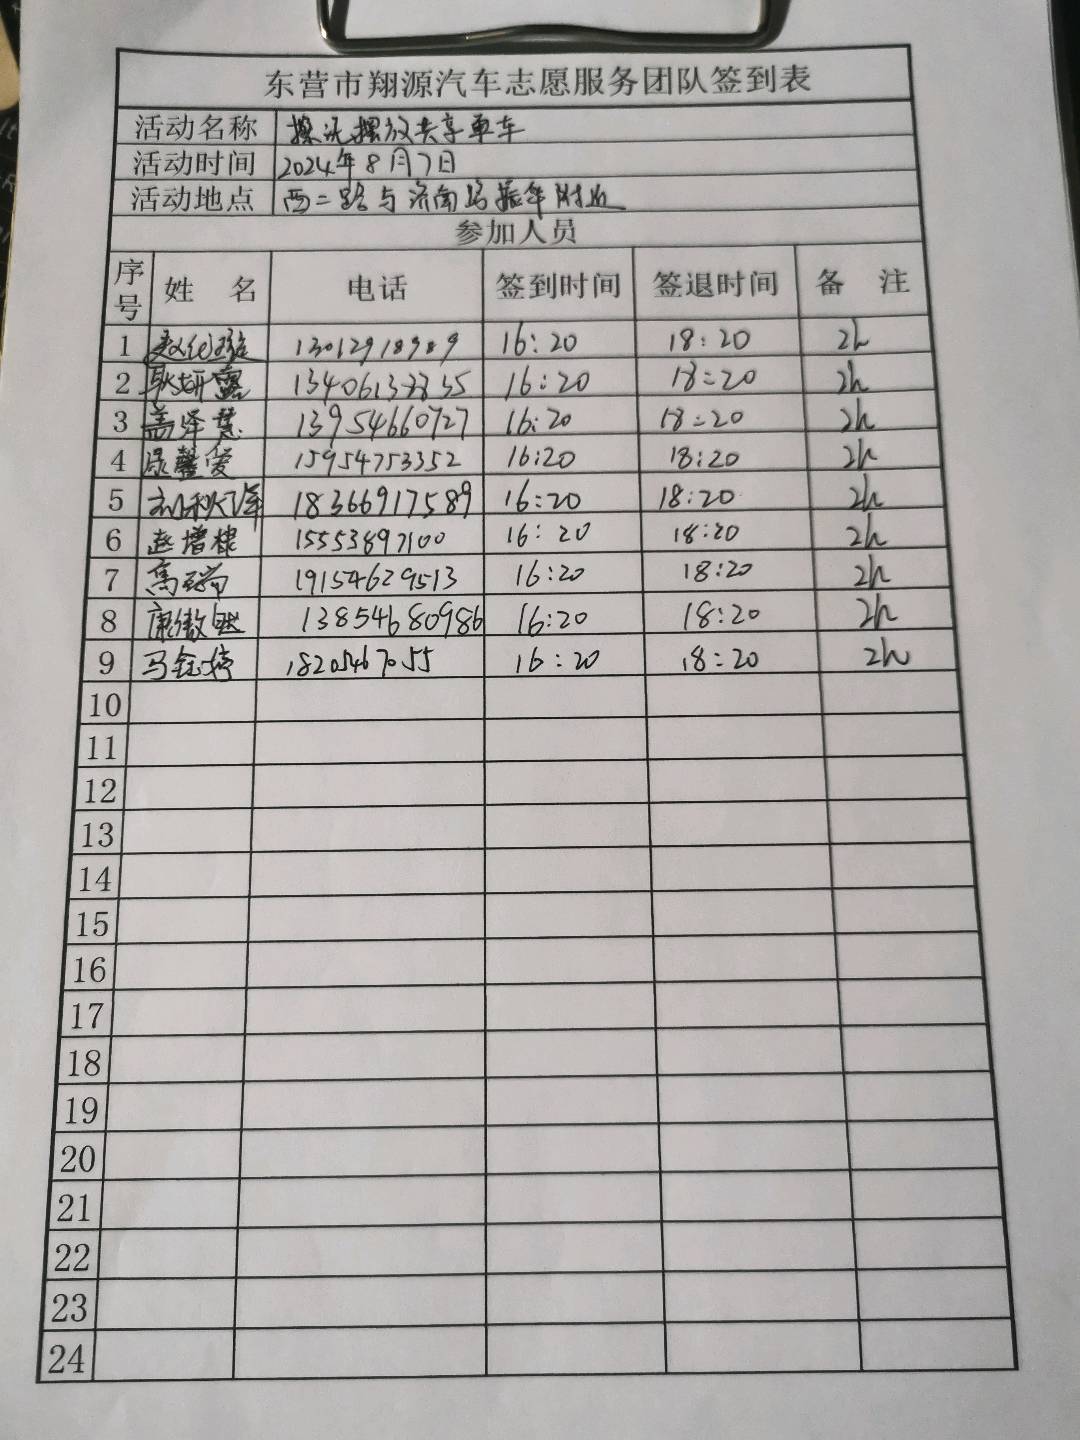 东营市翔源汽车志愿服务团队签到表
活动名称 擦洗摆放共享单车
活动时间 2024年8月7日
活动地点 西二路与济南路振华附近
参加人员
序号 姓 名 电话 签到时间 签退时间 备 注
1 13012918989 16:20 18:20 2h
2 耿妍露 13406133355 16:20 18:20 2h
3 盖泽慧 13954660727 16:20 18:20 2h
4 馨爱 15954753352 16:20 18:20 2h
5 刘秋萍 18366917589 16:20 18:20 2h
6 赵增棣 15553897100 16:20 18:20 2h
7 19154629513 16:20 18:20 2h
8 康傲 13854680986 16:20 18:20 2h
9 马钰婷 18205467055 16:20 18:20 2h
10
11
12
13
14
15
16
17
18
19
20
21
22
23
24